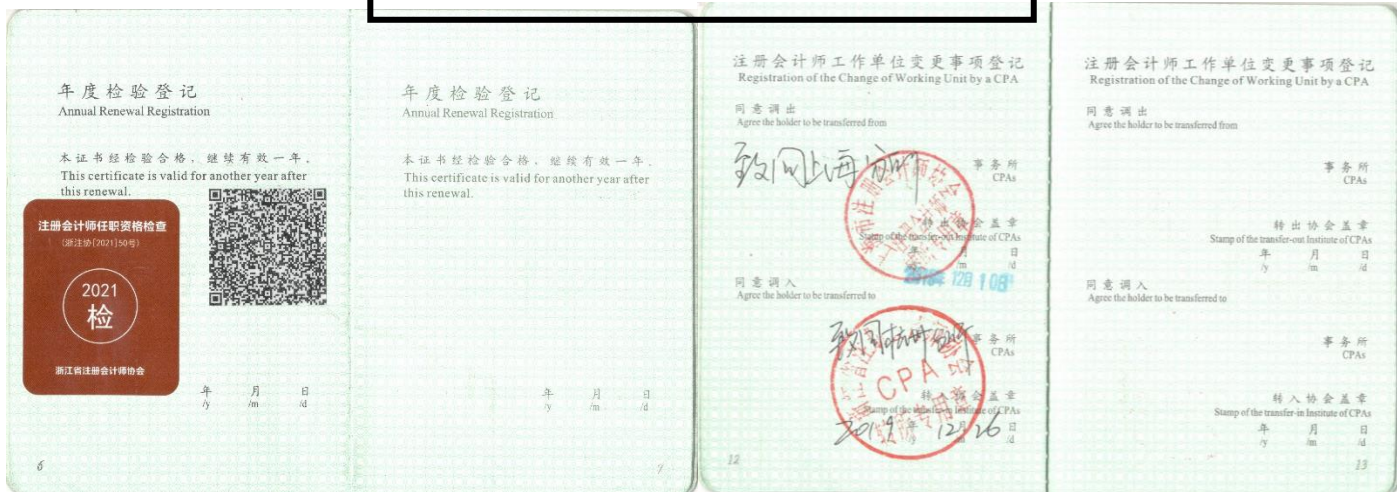 年度检验登记
Annual Renewal Registration
本证书经检验合格，继续有效一年。
This certificate is valid for another year after
this renewal.
注册会计师任职资格检查
(浙注协[2021]50号)
2021
检
浙江省注册会计师协会
年 月 日
/y /m /d
6
年度检验登记
Annual Renewal Registration
本证书经检验合格，继续有效一年。
This certificate is valid for another year after
this renewal.
年 月 日
/y /m /d
7
注册会计师工作单位变更事项登记
Registration of the Change of Working Unit by a CPA
同意调出
Agree the holder to be transferred from
致同上海分所
事务所
CPAs
转出协会盖章
Stamp of the transfer-out Institute of CPAs
年 月 日
/y /m /d
12月10日
同意调入
Agree the holder to be transferred to
致同杭州分所
事务所
CPAs
CPA
转入协会盖章
Stamp of the transfer-in Institute of CPAs
2019年12月26日
/y /m /d
12
注册会计师工作单位变更事项登记
Registration of the Change of Working Unit by a CPA
同意调出
Agree the holder to be transferred from
事务所
CPAs
转出协会盖章
Stamp of the transfer-out Institute of CPAs
年 月 日
/y /m /d
同意调入
Agree the holder to be transferred to
事务所
CPAs
转入协会盖章
Stamp of the transfer-in Institute of CPAs
年 月 日
/y /m /d
13